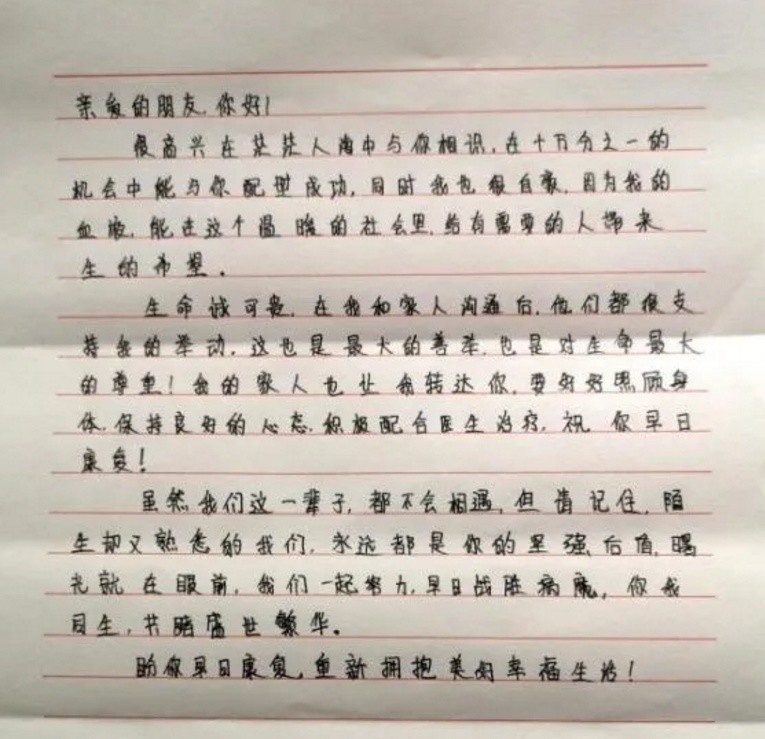 亲爱的朋友，你好！
很高兴在茫茫人海中与你相识，在十万分之一的
机会中能与你配型成功，同时我也很自豪，因为我的
血液，能在这个温暖的社会里，给有需要的人带来
生的希望。
生命诚可贵，在我和家人沟通后，他们都很支
持我的举动，这也是最大的善举，也是对生命最大
的尊重！我的家人也让我转达你，要好好照顾身
体，保持良好的心态，积极配合医生治疗，祝你早日
康复！
虽然我们这一辈子，都不会相遇，但请记住，陌
生却又熟悉的我们，永远都是你的坚强后盾，曙
光就在眼前，我们一起努力，早日战胜病魔，你我
同生，共踏盛世繁华。
助你早日康复，重新拥抱美好幸福生活！